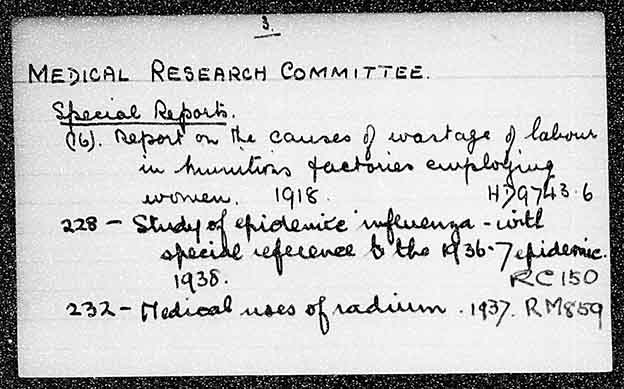 3.
MEDICAL RESEARCH COMMITTEE.
Special Reports.
(16). Report on the causes of wastage of labour
in munitions factories employing
women. 1918. HD9743.6
228 - Study of epidemic influenza - with
special reference to the 1936-7 epidemic.
1938. RC150
232 - Medical uses of radium. 1937. RM859